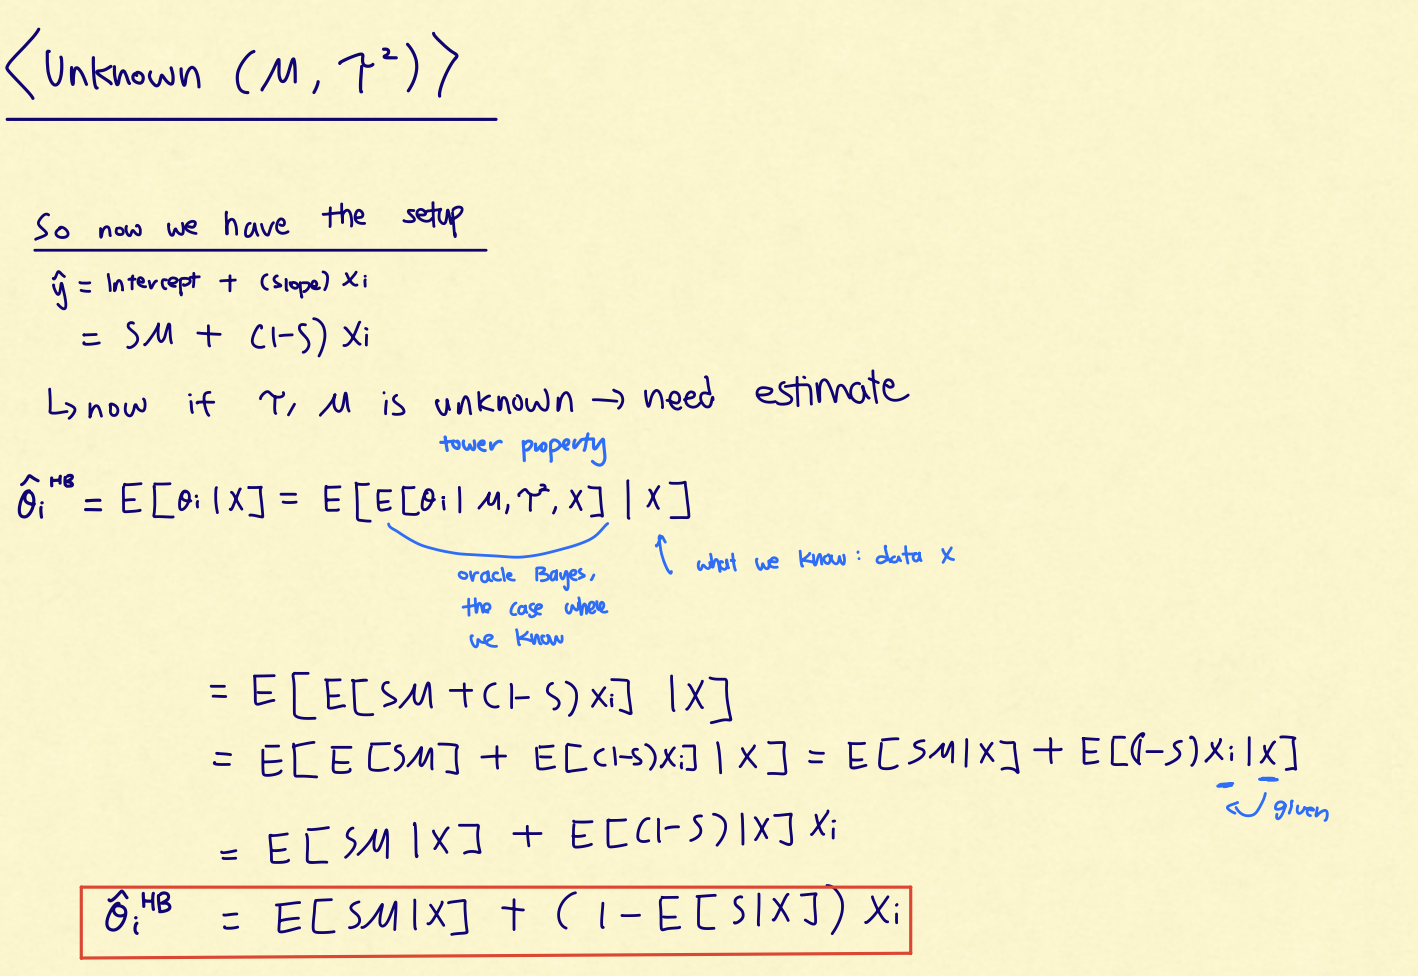 <Unknown (μ, τ²)>
So now we have the setup
ŷ = Intercept + (slope) Xi
= Sμ + (1-S) Xi
↳ now if τ, μ is unknown → need estimate
tower property
θ̂i^HB = E[θi | X] = E[E[θi | μ, τ², X] | X]
what we know: data X
oracle Bayes,
the case where
we know
= E[E[Sμ + (1-S) Xi] | X]
= E[E[Sμ] + E[(1-S)Xi] | X] = E[Sμ | X] + E[(1-S) Xi | X]
given
= E[Sμ | X] + E[(1-S) | X] Xi
θ̂i^HB = E[Sμ | X] + (1 - E[S | X]) Xi